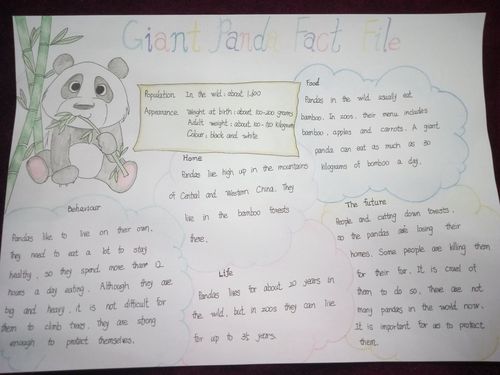 Giant Panda Fact File
Population In the wild: about 1,600
Appearance Weight at birth: about 100-200 grams
Adult weight: about 100-150 kilograms
Colour: black and white
Food
Pandas in the wild usually eat
bamboo. In zoos, their menu includes
bamboo, apples and carrots. A giant
panda can eat as much as 30
kilograms of bamboo a day.
Home
Pandas live high up in the mountains
of Central and Western China. They
live in the bamboo forests
there.
Behaviour
Pandas like to live on their own.
They need to eat a lot to stay
healthy, so they spend more than 12
hours a day eating. Although they are
big and heavy, it is not difficult for
them to climb trees. They are strong
enough to protect themselves.
Life
Pandas lives for about 20 years in
the wild, but in zoos they can live
for up to 35 years.
The future
People and cutting down forests,
so the pandas are losing their
homes. Some people are killing them
for their fur. It is cruel of
them to do so. There are not
many pandas in the world now.
It is important for us to protect
them.